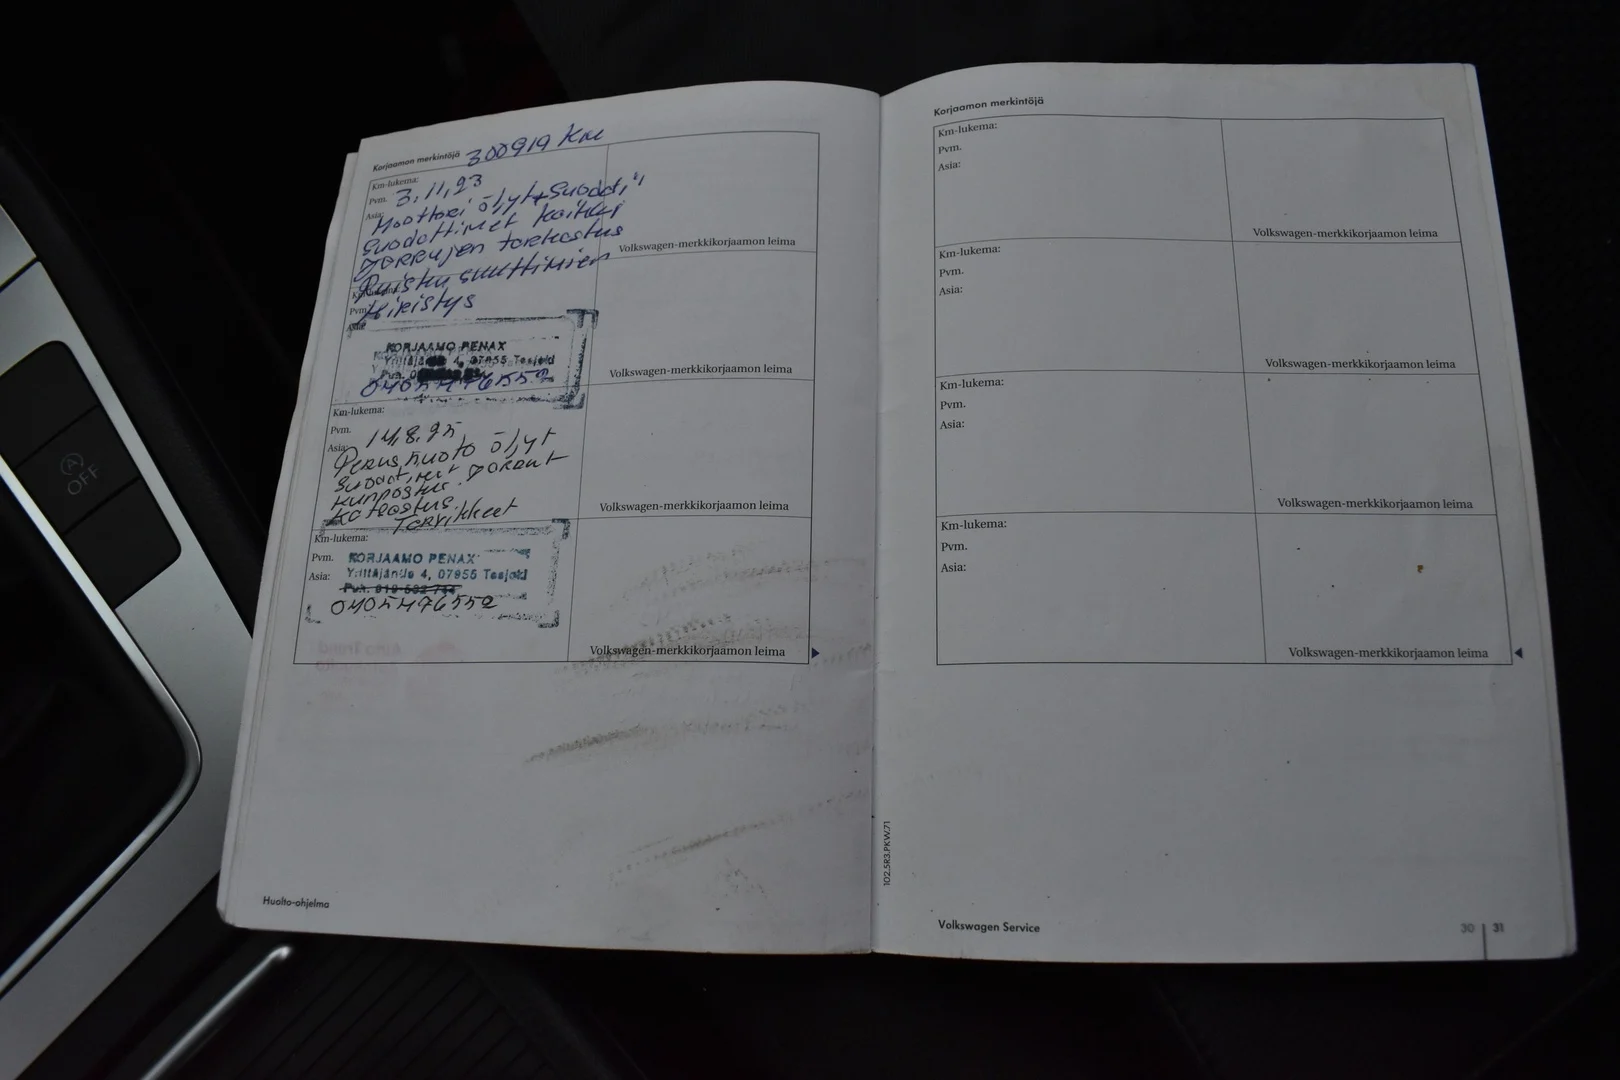 Korjaamon merkintöjä 300919 km
Km-lukema:
Pvm. 3.11.23
Asia: Moottori öljyt + Suodat.
Suodattimet kaikki
Jarrujen tarkastus
Volkswagen-merkkikorjaamon leima
Ruisku suuttimien
Pvm. Kiristys
Asia:
KORJAAMO PENAX
4, 07955 Tesjoki
Puh. 0
0405476552
Volkswagen-merkkikorjaamon leima
Km-lukema:
Pvm. 14.8.25
Asia: Perushuolto öljyt
Suodattimet
Tarvikkeet
Volkswagen-merkkikorjaamon leima
Km-lukema:
Pvm.
Asia:
KORJAAMO PENAX
Yrittäjäntie 4, 07955 Tesjoki
0405476552
Volkswagen-merkkikorjaamon leima
Huolto-ohjelma
Korjaamon merkintöjä
Km-lukema:
Pvm.
Asia:
Volkswagen-merkkikorjaamon leima
Km-lukema:
Pvm.
Asia:
Volkswagen-merkkikorjaamon leima
Km-lukema:
Pvm.
Asia:
Volkswagen-merkkikorjaamon leima
Km-lukema:
Pvm.
Asia:
Volkswagen-merkkikorjaamon leima
102.5R3.PKW.71
Volkswagen Service
30 31
A
OFF